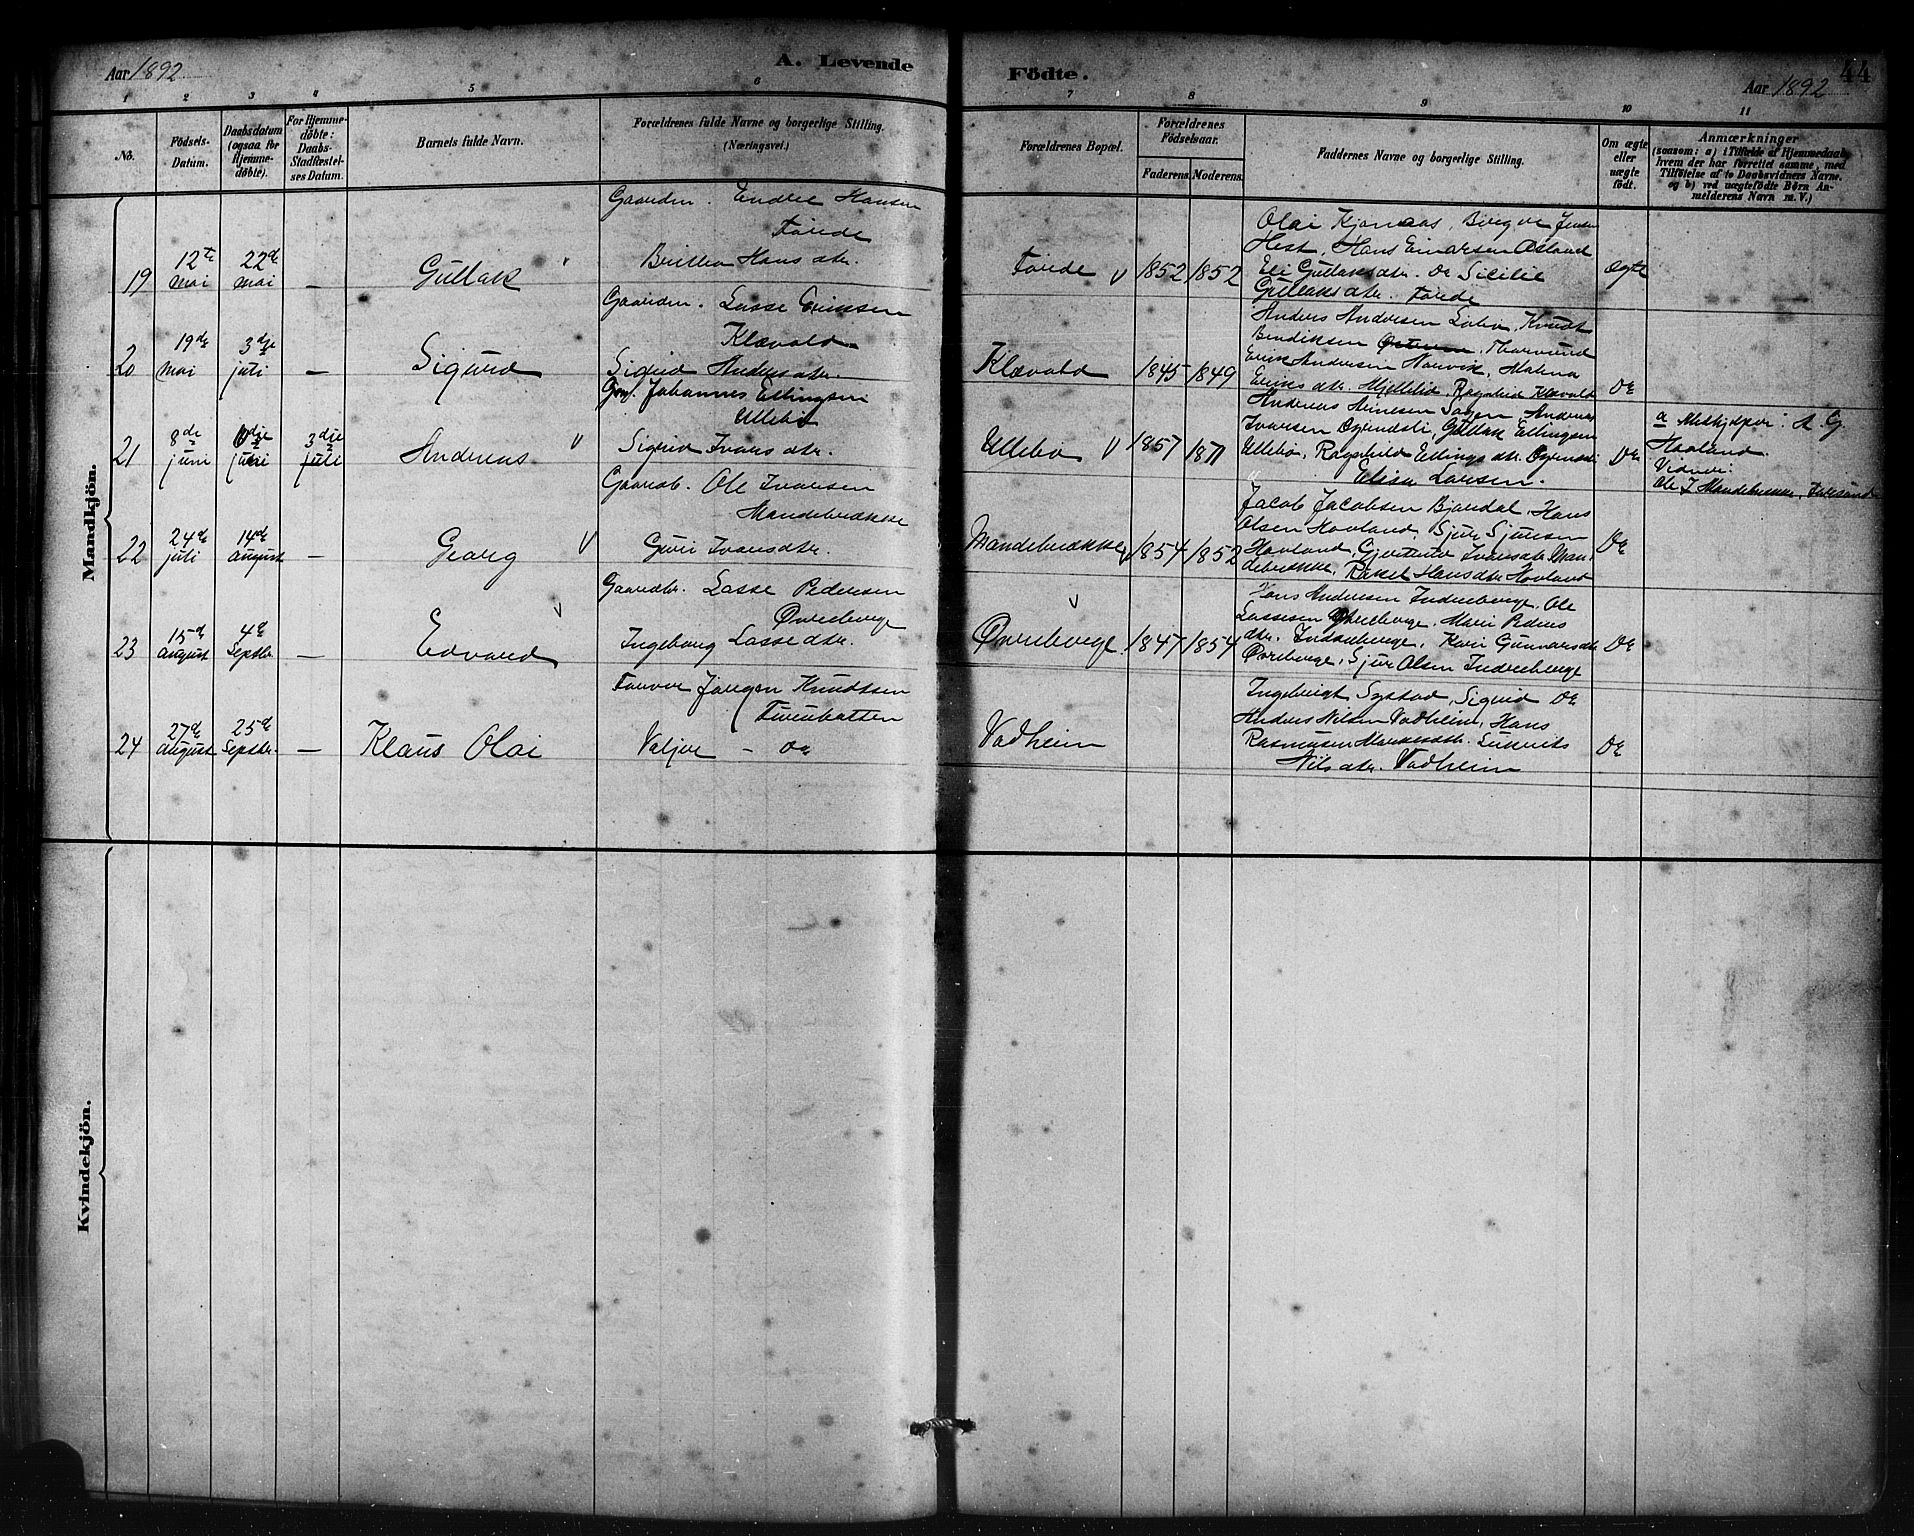 Aar 1892
A. Levende
Födte.
Aar 1892
44
1 2 3 4 5 6 7 8 9 10 11
No.
Födsels-
Datum.
Daabsdatum
(ogsaa for
Hjemme-
döbte).
For Hjemme-
döbte:
Daabs-
Stadfæstel-
ses Datum.
Barnets fulde Navn.
Forældrenes fulde Navne og borgerlige Stilling.
(Næringsvei.)
Forældrenes Bopæl.
Forældrenes
Födselsaar.
Faderens. Moderens.
Faddernes Navne og borgerlige Stilling.
Om ægte
eller
uægte
födt.
Anmærkninger
(saasom: a) i Tilfælde af Hjemmedaab,
hvem der har forrettet samme, med
Tilföielse af to Daabsvidners Navne.
og b) ved uægtefödte Börn An-
melderens Navn m.V.)
Mandkjön.
19
12te
mai
22de
mai
—
Gullak
Gaardm. Endre Hansen
Förde
Brithe Hansdtr.
Förde
1852 1852
Olai Kjønaas, Jensen
Hest, Hans Einarsen Østand
Eli Gullaksdtr. Do Sicilie
Gullaksdtr. Förde
Ægte
20
19de
mai
3dje
juli
—
Sigurd
Gaardm. Lasse Eriksen
Klævold
Sigrid Andersdtr.
Klævold
1845 1849
Anders Andersen Knudt
Bendiksen
Erik Andersen Haavik, Malena
Eriksdtr. Mjellebø, Ragnhild Klævold
Do
21
8de
juni
juni
3dje
juli
Andreas
Gm. Johannes Ellingsen
Ullebø
Sigrid Ivarsdtr.
Ullebø
1857 1871
Andreas Andreas
Ivarsen Gullak Ellingsen
Ullebø, Ragnhild Ellingsdtr.
Larsen.
Do
a A. G.
Hovland.
Vidner:
22
24de
juli
14de
August
—
Georg
Gaardbr. Ole Ivarsen
Mandebrække
Guri Ivarsdtr.
Mandebrække
1854 1852
Jacob Jacobsen Bjordal, Hans
Olsen Hovland, Sjur Sjursen
Hovland, Ivarsdtr. Man-
debrække, Rakel Hansdtr. Hovland
Do
23
15de
August
4de
Septbr.
—
Edvard
Gaardbr. Lasse Pedersen
Øvreberge
Ingeborg Lassedtr.
Øvreberge
1847 1854
Hans Andersen Indreberge, Ole
Lassesen Øvreberge, Mari Peders
dtr. Indreberge, Kari Gunnarsdtr
Øvreberge, Sjur Olsen Indreberge
Do
24
27de
August
25de
Septbr.
—
Klaus Olai
Farver Jörgen Knudtsen
Valjer — Do
Vadheim
Ingebrigt Systad, Sigrid Do
Anders Nilsen Vadheim, Hans
Rasmusen
Nilsdtr. Vadheim
Do
Kvindekjön.